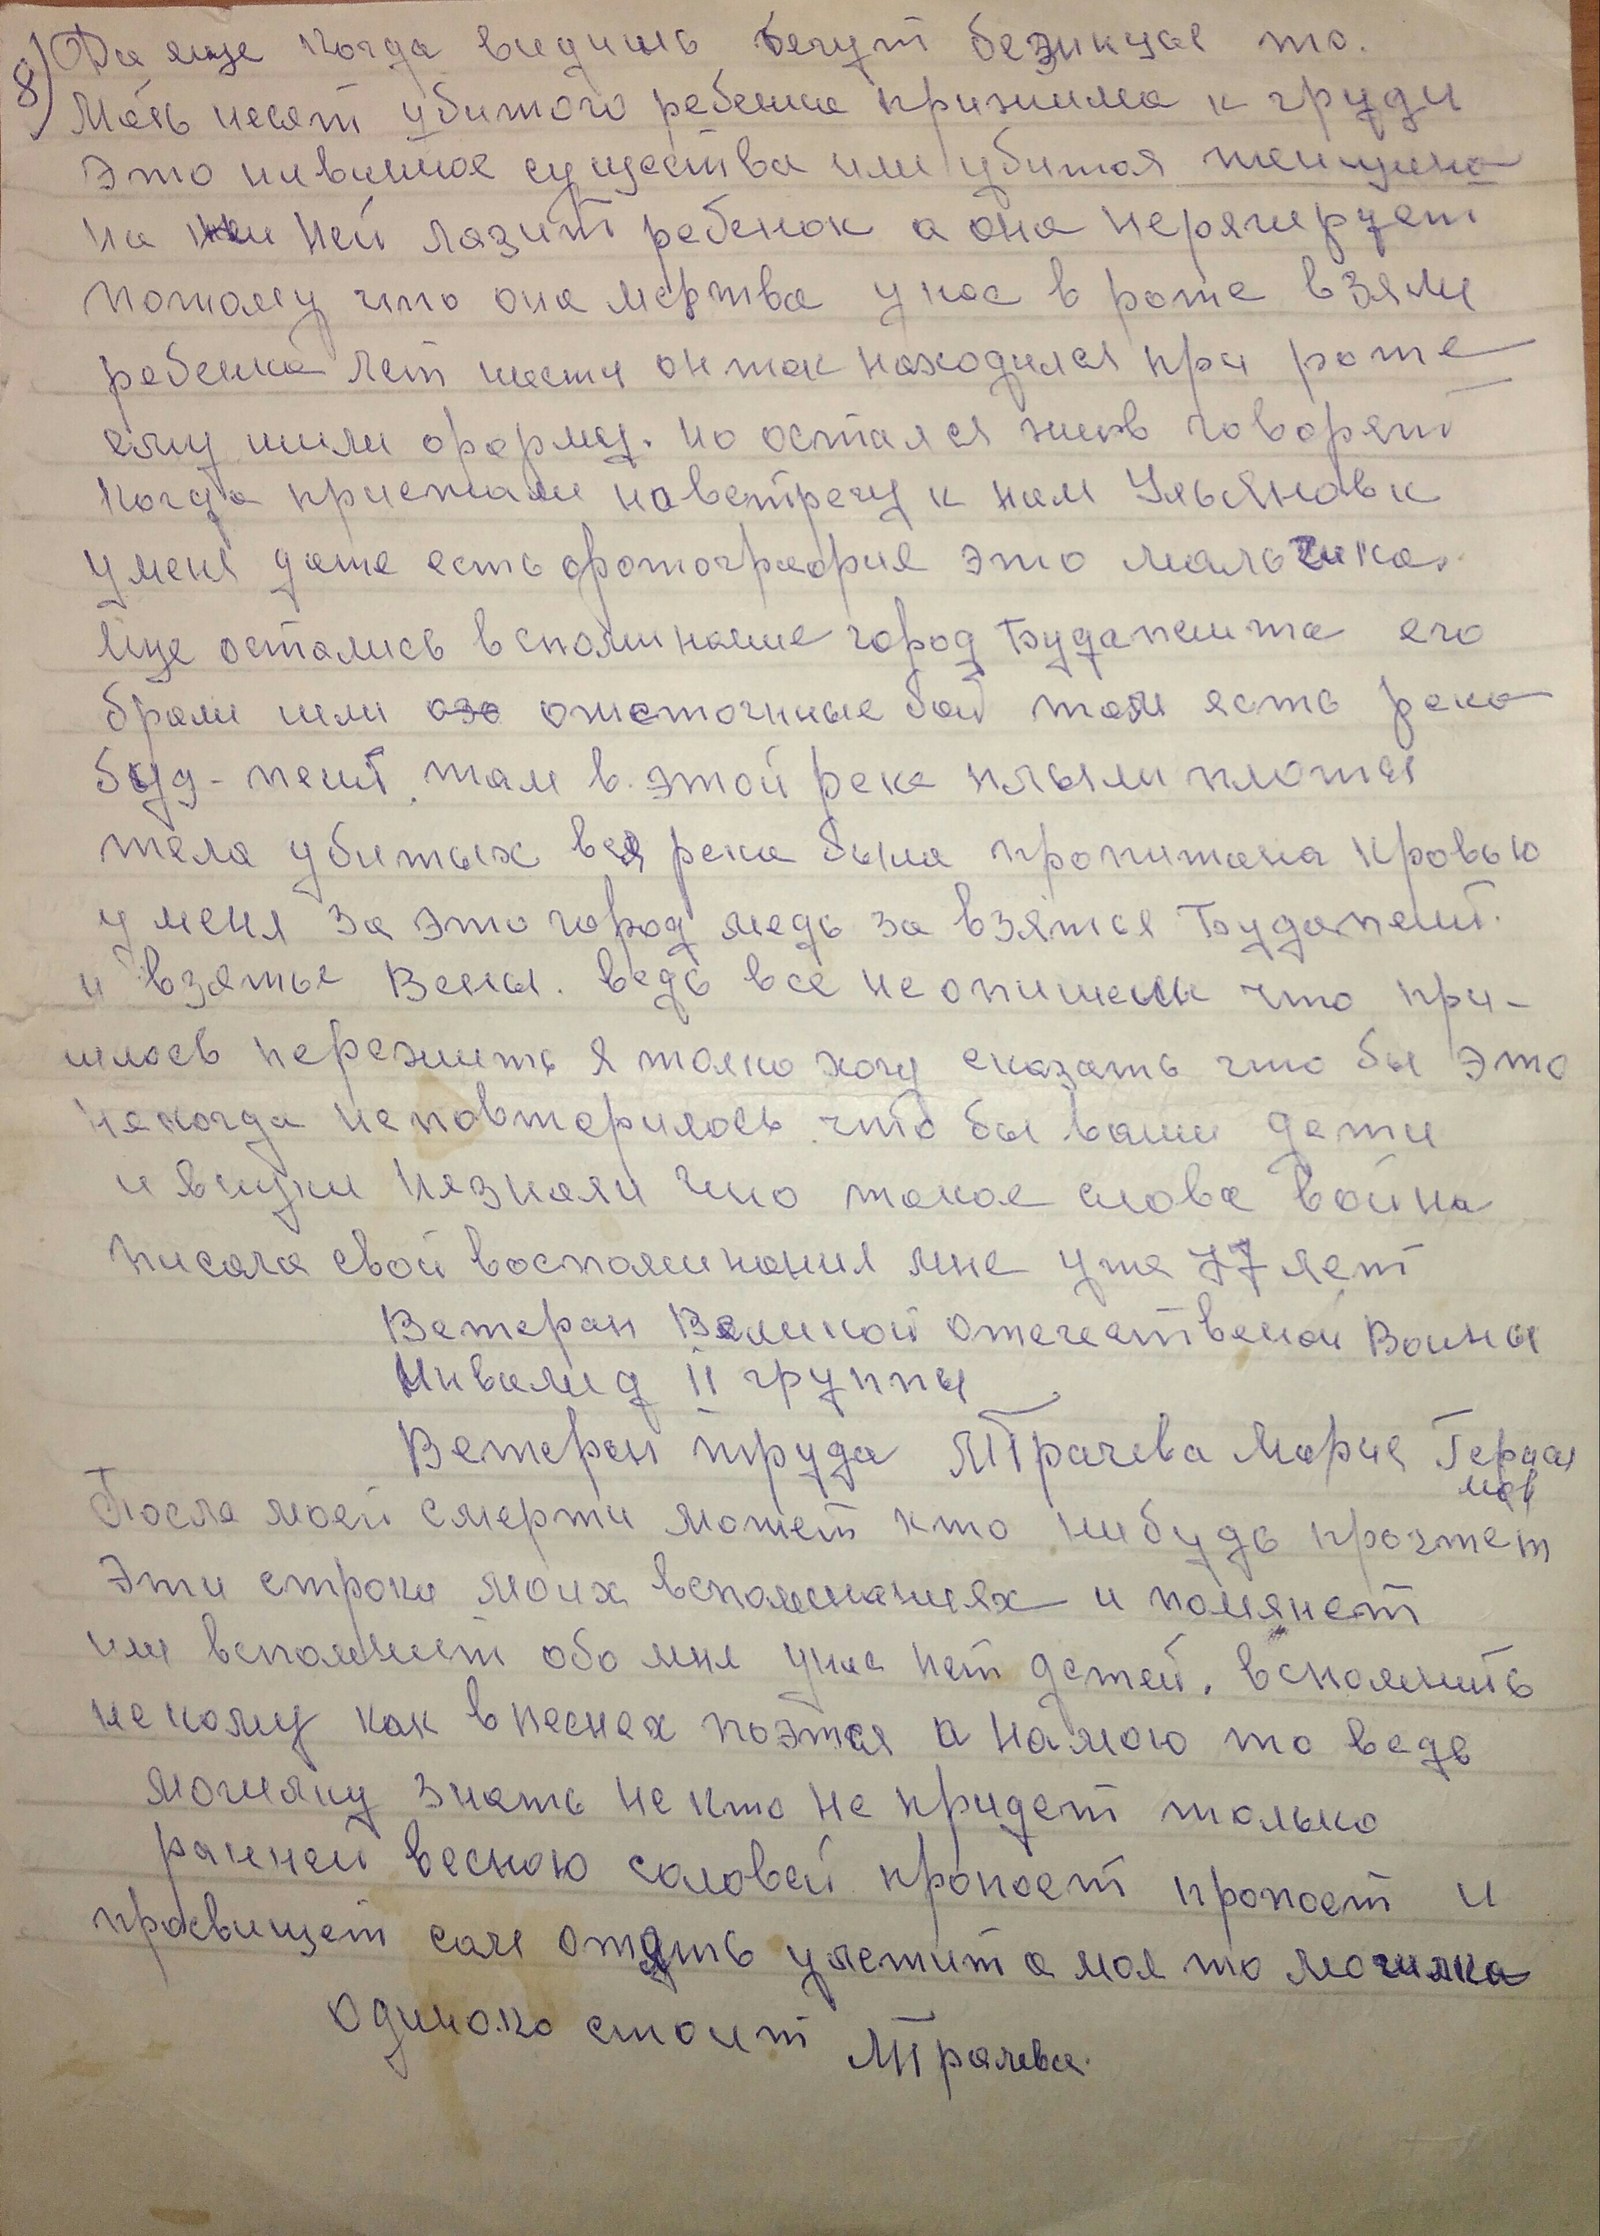 8) Да еще когда видишь бегут беженцы то.
Мать несет убитого ребенка прижима к груди
это нивинное существа или убитая женщина
на ней лазит ребенок а она нерягирует
потому что она мертва у нас в роте взяли
ребенка лет шести он так находился при роте
ему шили форму. но остался жив говорят
когда приезжали навстречу к нам Ульяновск
у меня даже есть фотография это мальчика.
Еще остались вспоминание город Будапешта его
брали шли ожесточиные бой там есть река
буд-пешт там в этой реке плыли плоты
тела убитых вся река была пропитана кровью
у меня за это город медь за взятья Будапешт.
и взятье Вены. ведь все не опишеш что при-
шлось пережить я толко хочу сказать что бы это
некогда неповторилось что бы ваши дети
и внуки незнали что такое слова война
писала свой воспоминания мне уже 77 лет
Ветеран Великой отечественой Войны
Инвалид II группы
Ветеран труда МТрачева Мария Герас
имов
После моей смерти может кто нибудь прочтет
Эти строки моих вспоминаниях и помянет
или вспомнит обо мне у нас нет детей. вспомнить
некому как в песнех поэтся а на мою то ведь
могилку знать не кто не придет только
ранней весною соловей пропоет пропоет и
просвищет сам опять улетит а моя то могилка
одиноко стоит МТрачева.